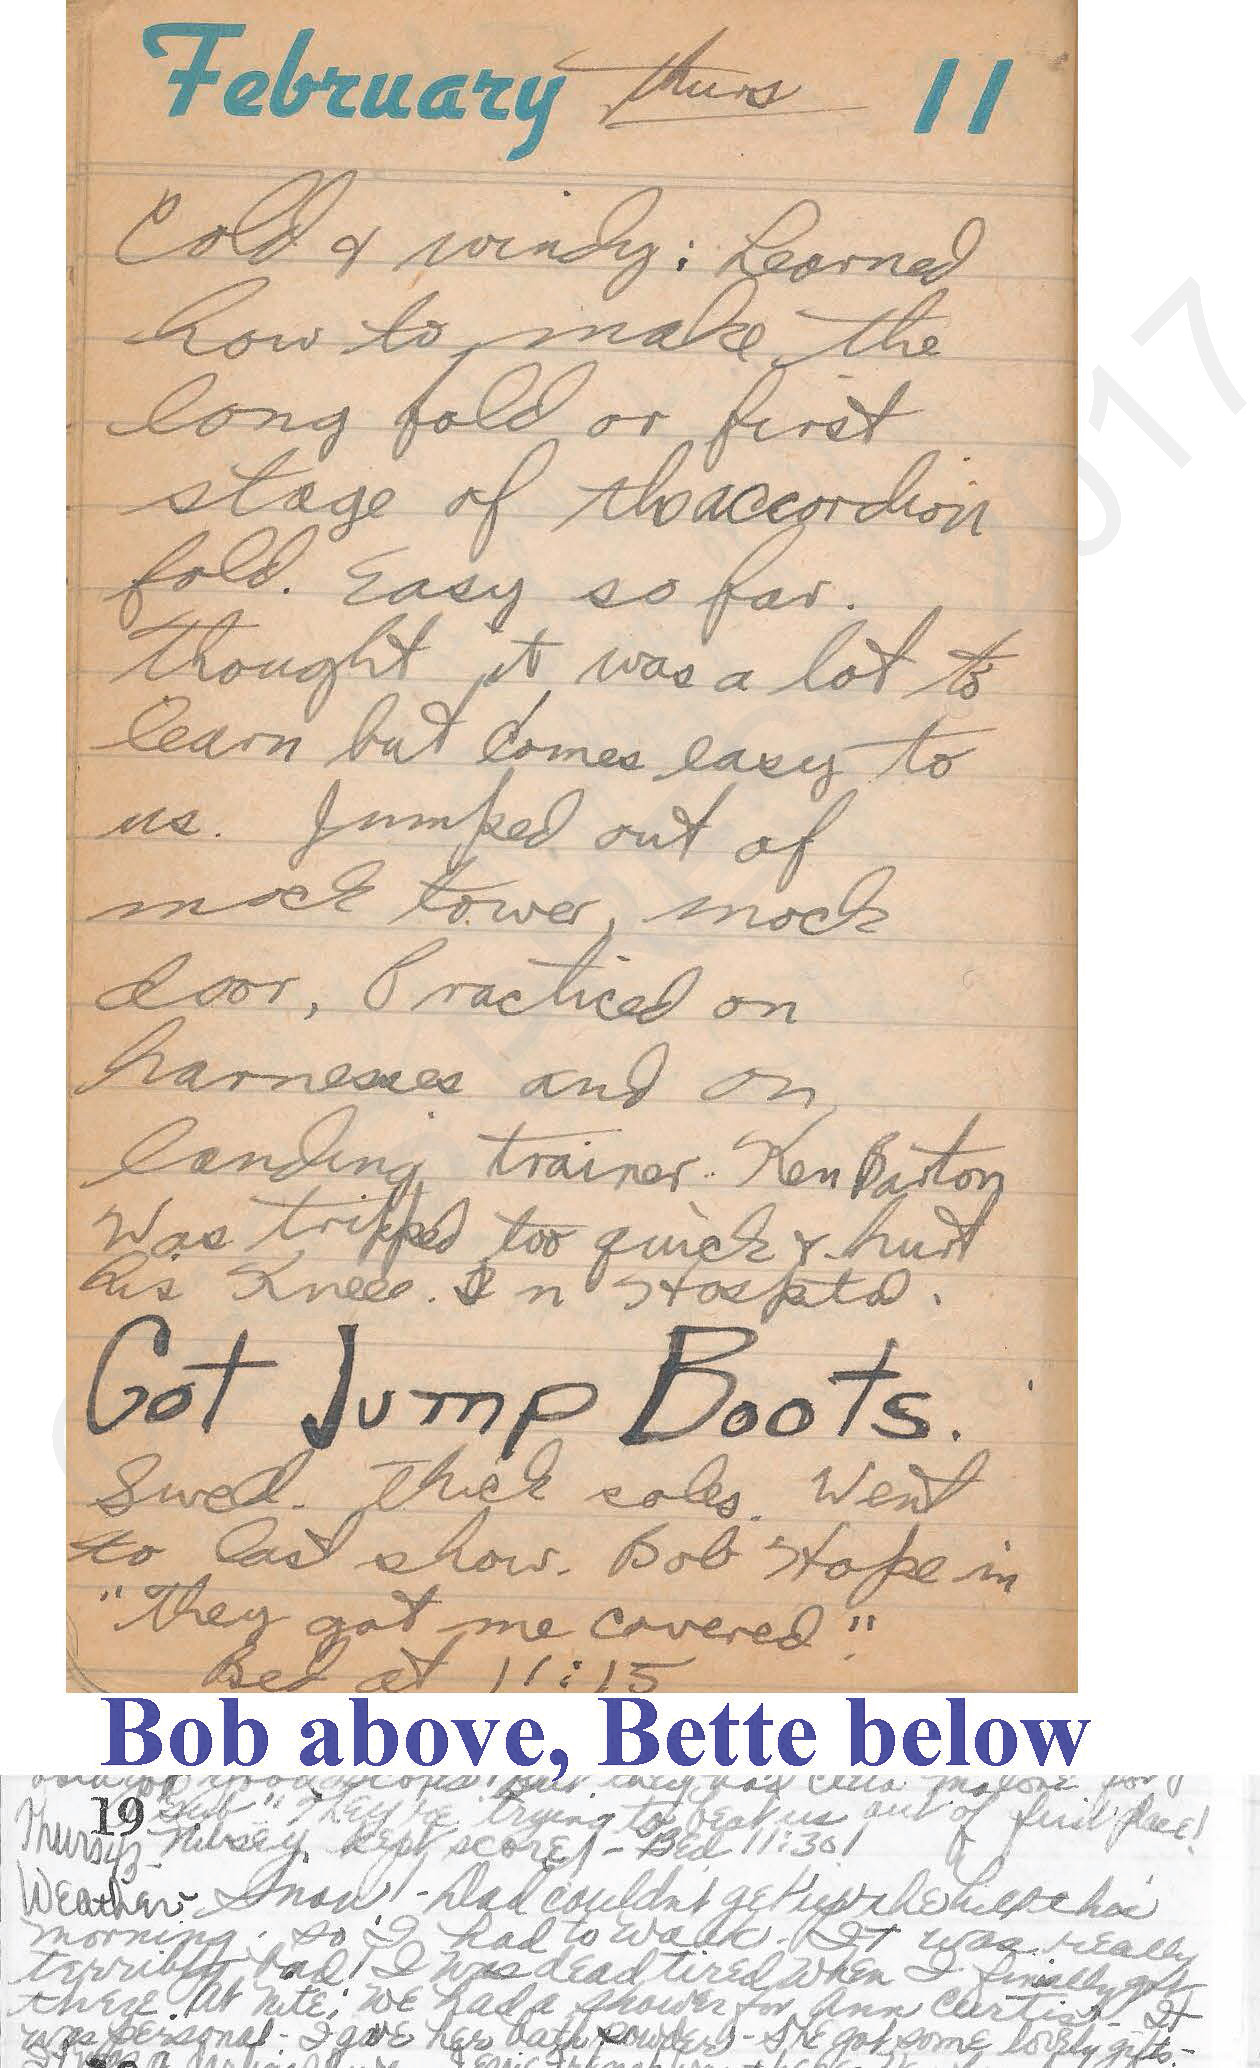 February Thurs 11
Cold & windy: Learned
how to make the
long fold or first
stage of the accordion
fold. Easy so far.
Thought it was a lot to
learn but comes easy to
us. Jumped out of
mock tower, mock
door, Practiced on
harnesses and on
landing trainer. Ken Barton
Was tripped too quick & hurt
his Knee. In Hospital.
Got Jump Boots.
Swed. Thick soles. Went
to last show. Bob Hope in
"They got me covered".
Bed at 11:15
Bob above, Bette below
sub" They're trying to beat us out of first place!
19
Thurs kept score! - Bed 11:30!
Weather Snow! - Dad couldn't get up the hill this
morning. So I had to walk. It was really
terribly bad! I was dead tired when I finally got
there. At nite, we had a shower for Ann Curtis!- It
was personal - I gave her bath powder!- She got some lovely gifts-
2017